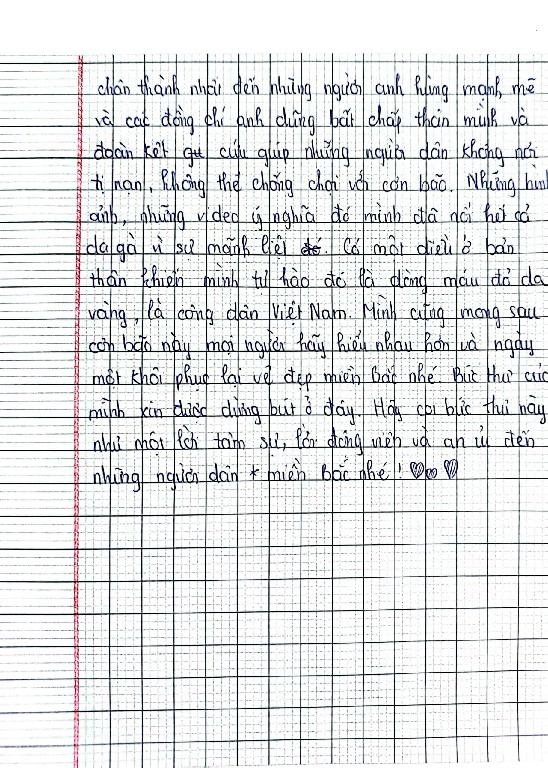 chân thành nhất đến những người anh hùng mạnh mẽ
và các đồng chí anh dũng bất chấp thân mình và
đoàn kết cứu giúp những người dân không nơi
tị nạn, không thể chống chọi với cơn bão. Những hình
ảnh, những video ý nghĩa đó mình đã nổi hết cả
da gà vì sự mãnh liệt. Có một điều ở bản
thân khiến mình tự hào đó là dòng máu đỏ da
vàng, là công dân Việt Nam. Mình cũng mong sau
cơn bão này mọi người hãy hiểu nhau hơn và ngày
một khôi phục lại vẻ đẹp miền Bắc nhé. Bức thư của
mình xin được dừng bút ở đây. Hãy coi bức thư này
như một lời tâm sự, lời động viên và an ủi đến
những người dân * miền Bắc nhé!